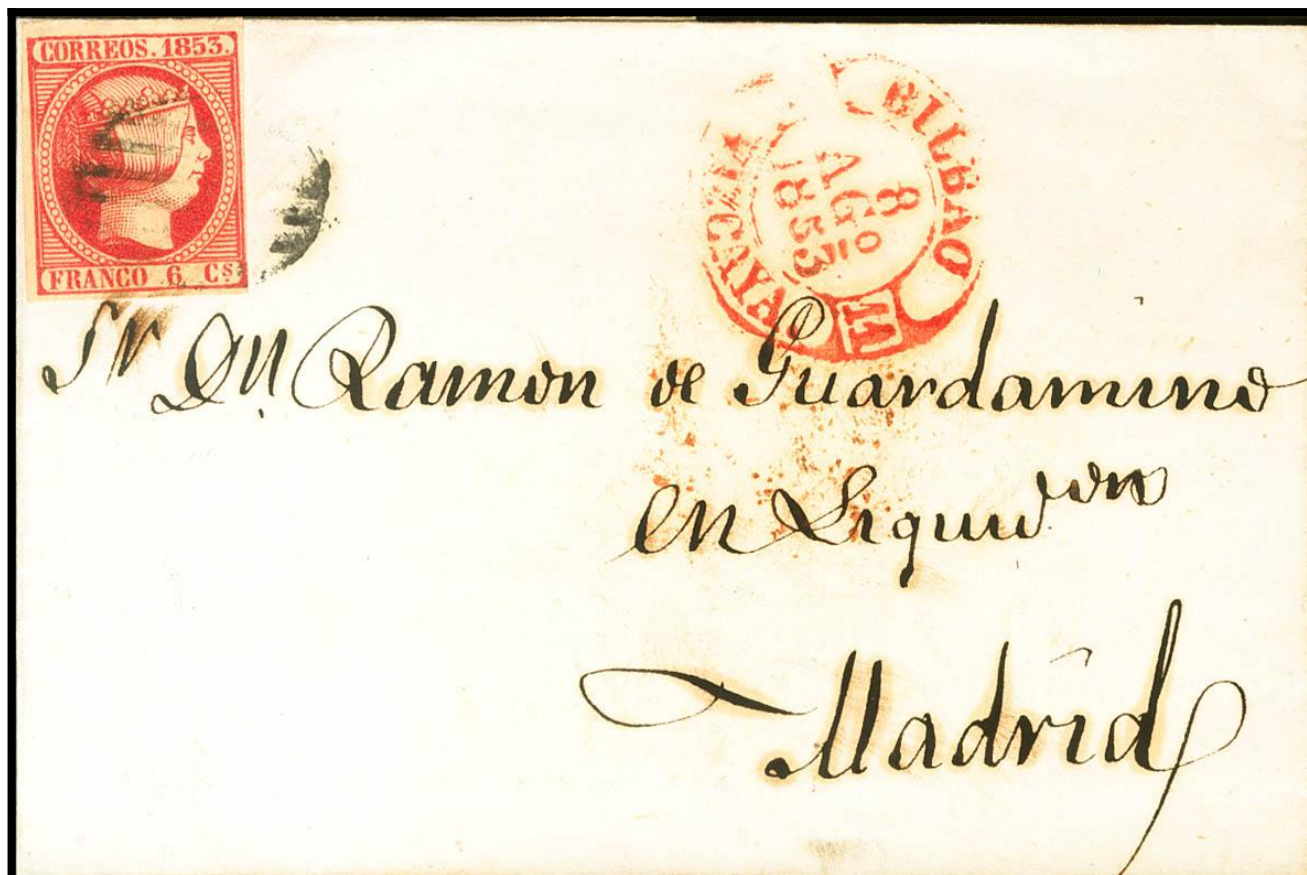 CORREOS. 1853.
FRANCO 6 Cs
BILBAO
8
AGo
1853
VIZCAYA
Sr Dn Ramon de Guardamino
en Liquidon
Madrid